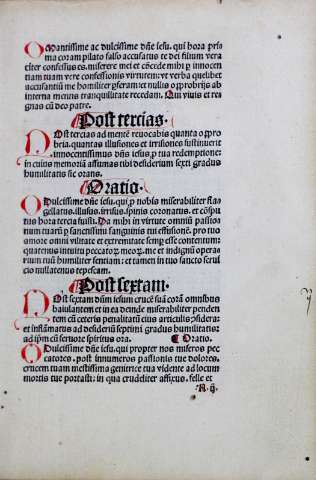 O Amantissime ac dulcissime dñe iesu, qui hora pri
ma coram pilato falso accusatus te dei filium vera
citer confessus es. miserere mei et cõcede mihi ꝑ innocen
tiam tuam vere confessionis virtutem: vt verba quelibet
accusantiũ me humiliter ꝑferam et nullis oꝓbrijs ab
interna mentis tranquillitate recedam. Qui viuis et re
gnas cũ deo patre.
Post tercias.
Post tercias ad mentẽ reuocabis quanta oꝓbro
bria, quantas illusiones et irrisiones sustinuerit
innocentissimus dñs iesus, ꝓ tua redemptione
in cuius memoriã assumas tibi desiderium sexti gradus
humilitatis sic orans.
Oratio.
O Dulcissime dñe iesu, qui ꝓ nobis miserabiliter fla
gellatus, illusus, irrisus, spinis coronatus, et cõspu
tus hora tercia fuisti. Da mihi in virtute omniũ passio
num tuarũ ꝑ sanctissimi sanguinis tui effusionẽ. ꝓ tuo
amore omni vilitate et extremitate semꝑ esse contentum:
quatenus intuitu peccatoꝝ meoꝝ. me et indignũ opera
rium tuũ humiliter sentiam: et tamen in tuo sancto serui
cio nullatenus tepescam.
Post sextam.
Post sextam dum iesum crucẽ suã corã omnibus
baiulantem et in ea deinde miserabiliter penden
tem cũ ceteris penalitatũ eius articulis: ꝯsideras
et inflamatus ad desideriũ septimi gradus humilitatis:
ad ipm̃ cũ feruore spiritus ora. ¶ Oratio.
O Dulcissime dñe iesu, qui propter nos miseros pec
catores, post innumeros passionis tue dolores,
crucem tuam mestissima genitrice tua vidente ad locum
mortis tue portasti: in qua crudeliter affixus, felle et